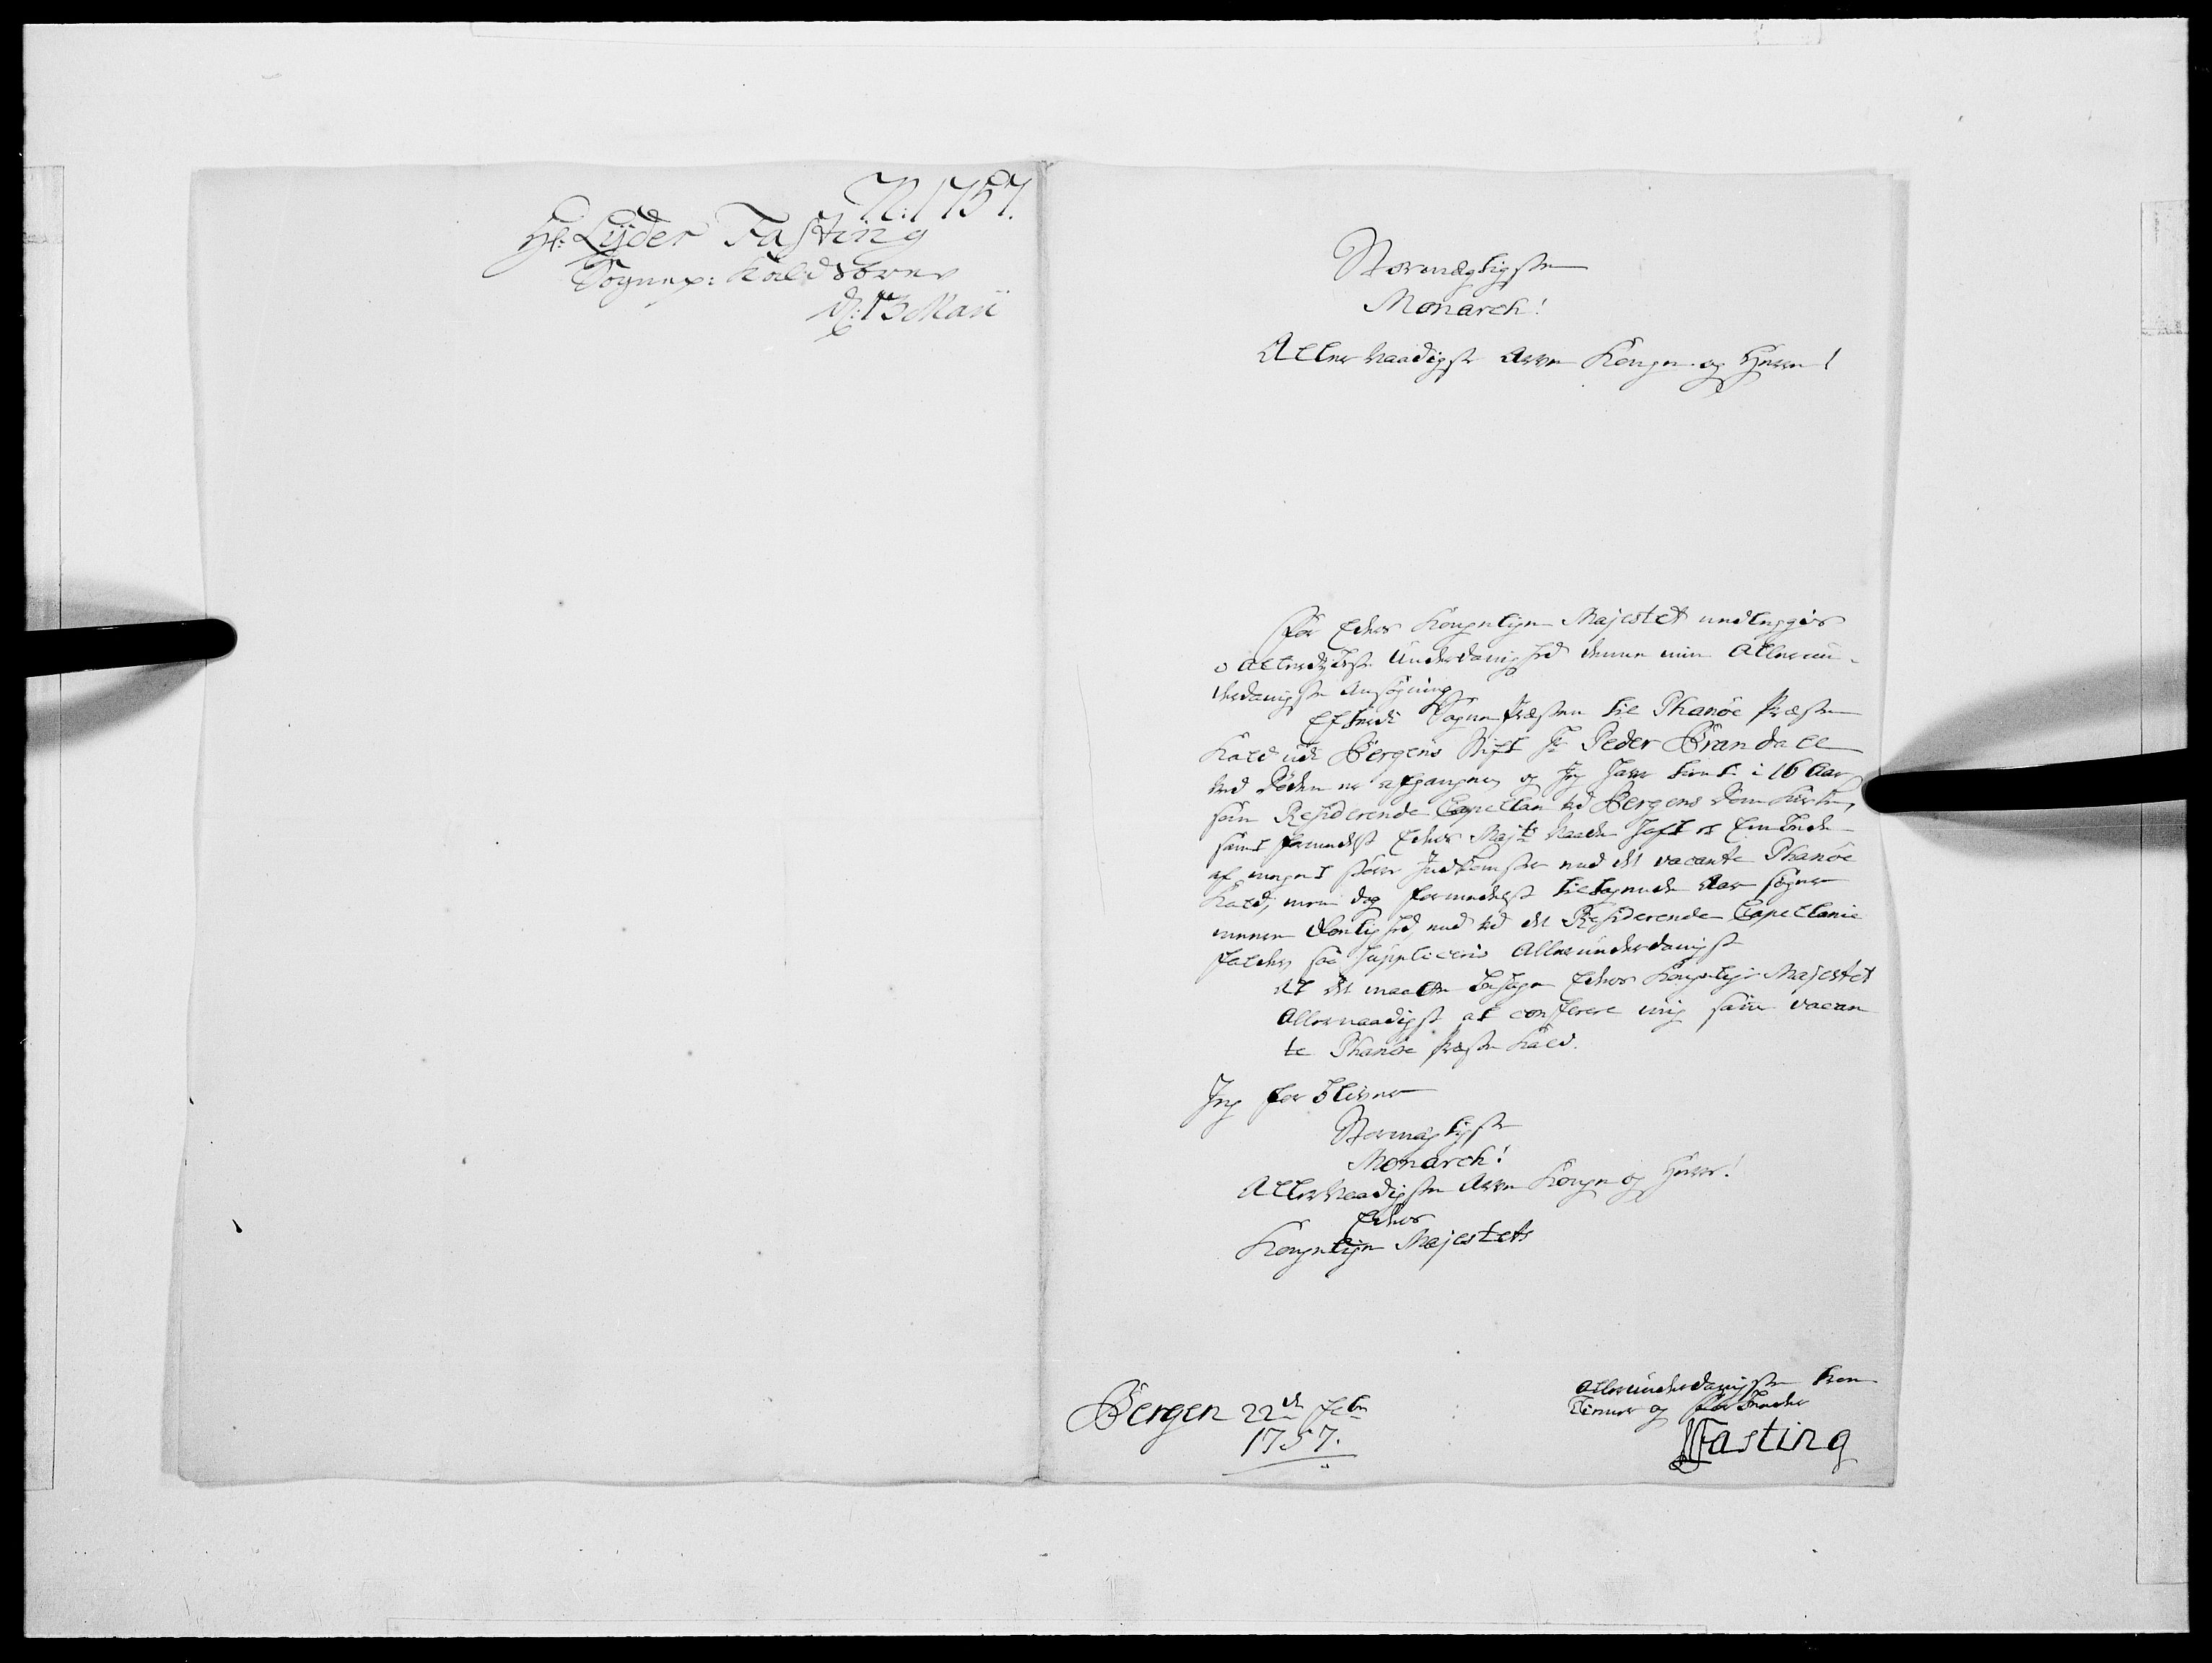 N: 1757.
Hr: Lyder Fasting
Sognep: Kaldsbrev
d: 13 Maii
Stormægtigste
Monarch!
Allernaadigste Arve Konge og Herre!
For Eders Kongelige Majestet nedlegges
i Allerdybeste Underdanighed denne min Allerun-
derdanigste Ansøgning
Efterdi Sognepræsten til Phanöe Præste
Kald udi Bergens Stift Hr Peder Brandall
ved Døden er afgangen, og Jeg haver tient i 16 Aar
som Residerende Capellan ved Bergens Dom Kirke,
samt formedelst Eders Majts Naade haft et Embede
af meget større Indkomster end det vacante Phanöe
Kald, men dog formedelst tiltagende Aar søger
meere Roelighed, end ved det Residerende Capellanie
falder, saa suppliceris Allerunderdanigst
at det maatte behage Eders Kongelige Majestet
Allernaadigst at conferere mig samme vacan
te Phanöe Præste Kald.
Jeg forbliver
Stormægtigste
Monarch!
Allernaadigste Arve Konge og Herre!
Eders
Kongelige Majestets
Bergen 22de Febr
1757.
allerunderdanigste troe
Tiener og forbeder
LFasting